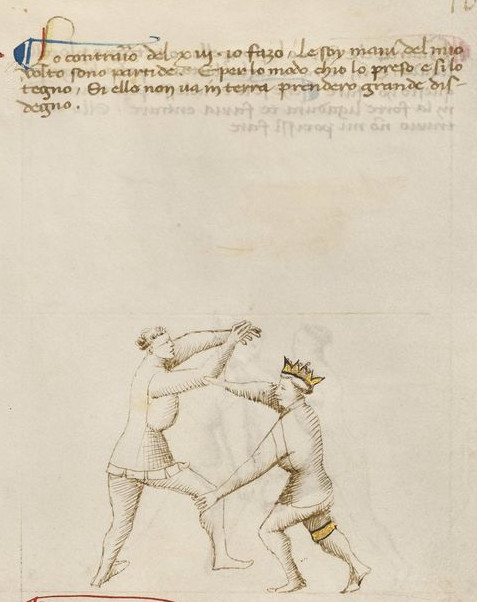 Lo contrario del xiii io fazo. Le soy mani del mio
volto sono partide. E per lo modo ch'io lo preso e si lo
tegno, Si ello non va in terra prendero grande dis-
degno.